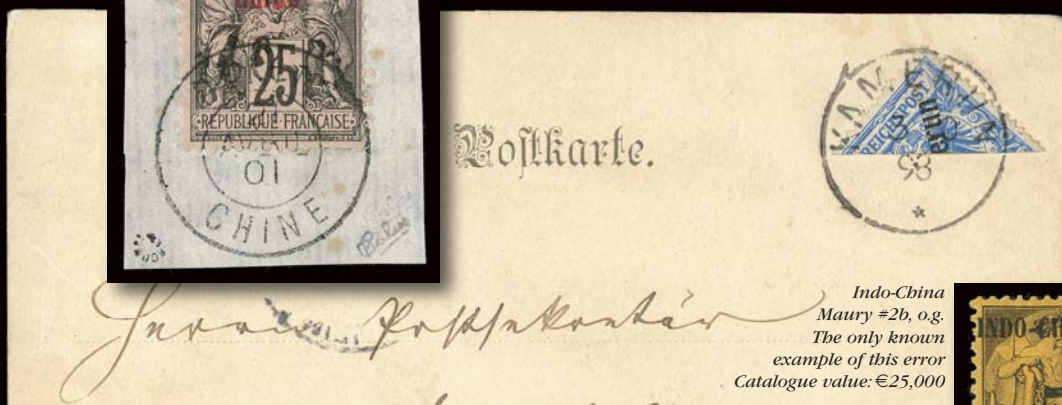 25
REPUBLIQUE FRANÇAISE
01
CHINE
Poſtkarte.
KAMERUN
REICHSPOST
98
*
Herrn Postsekretär
Indo-China
Maury #2b, o.g.
The only known
example of this error
Catalogue value: €25,000
INDO-